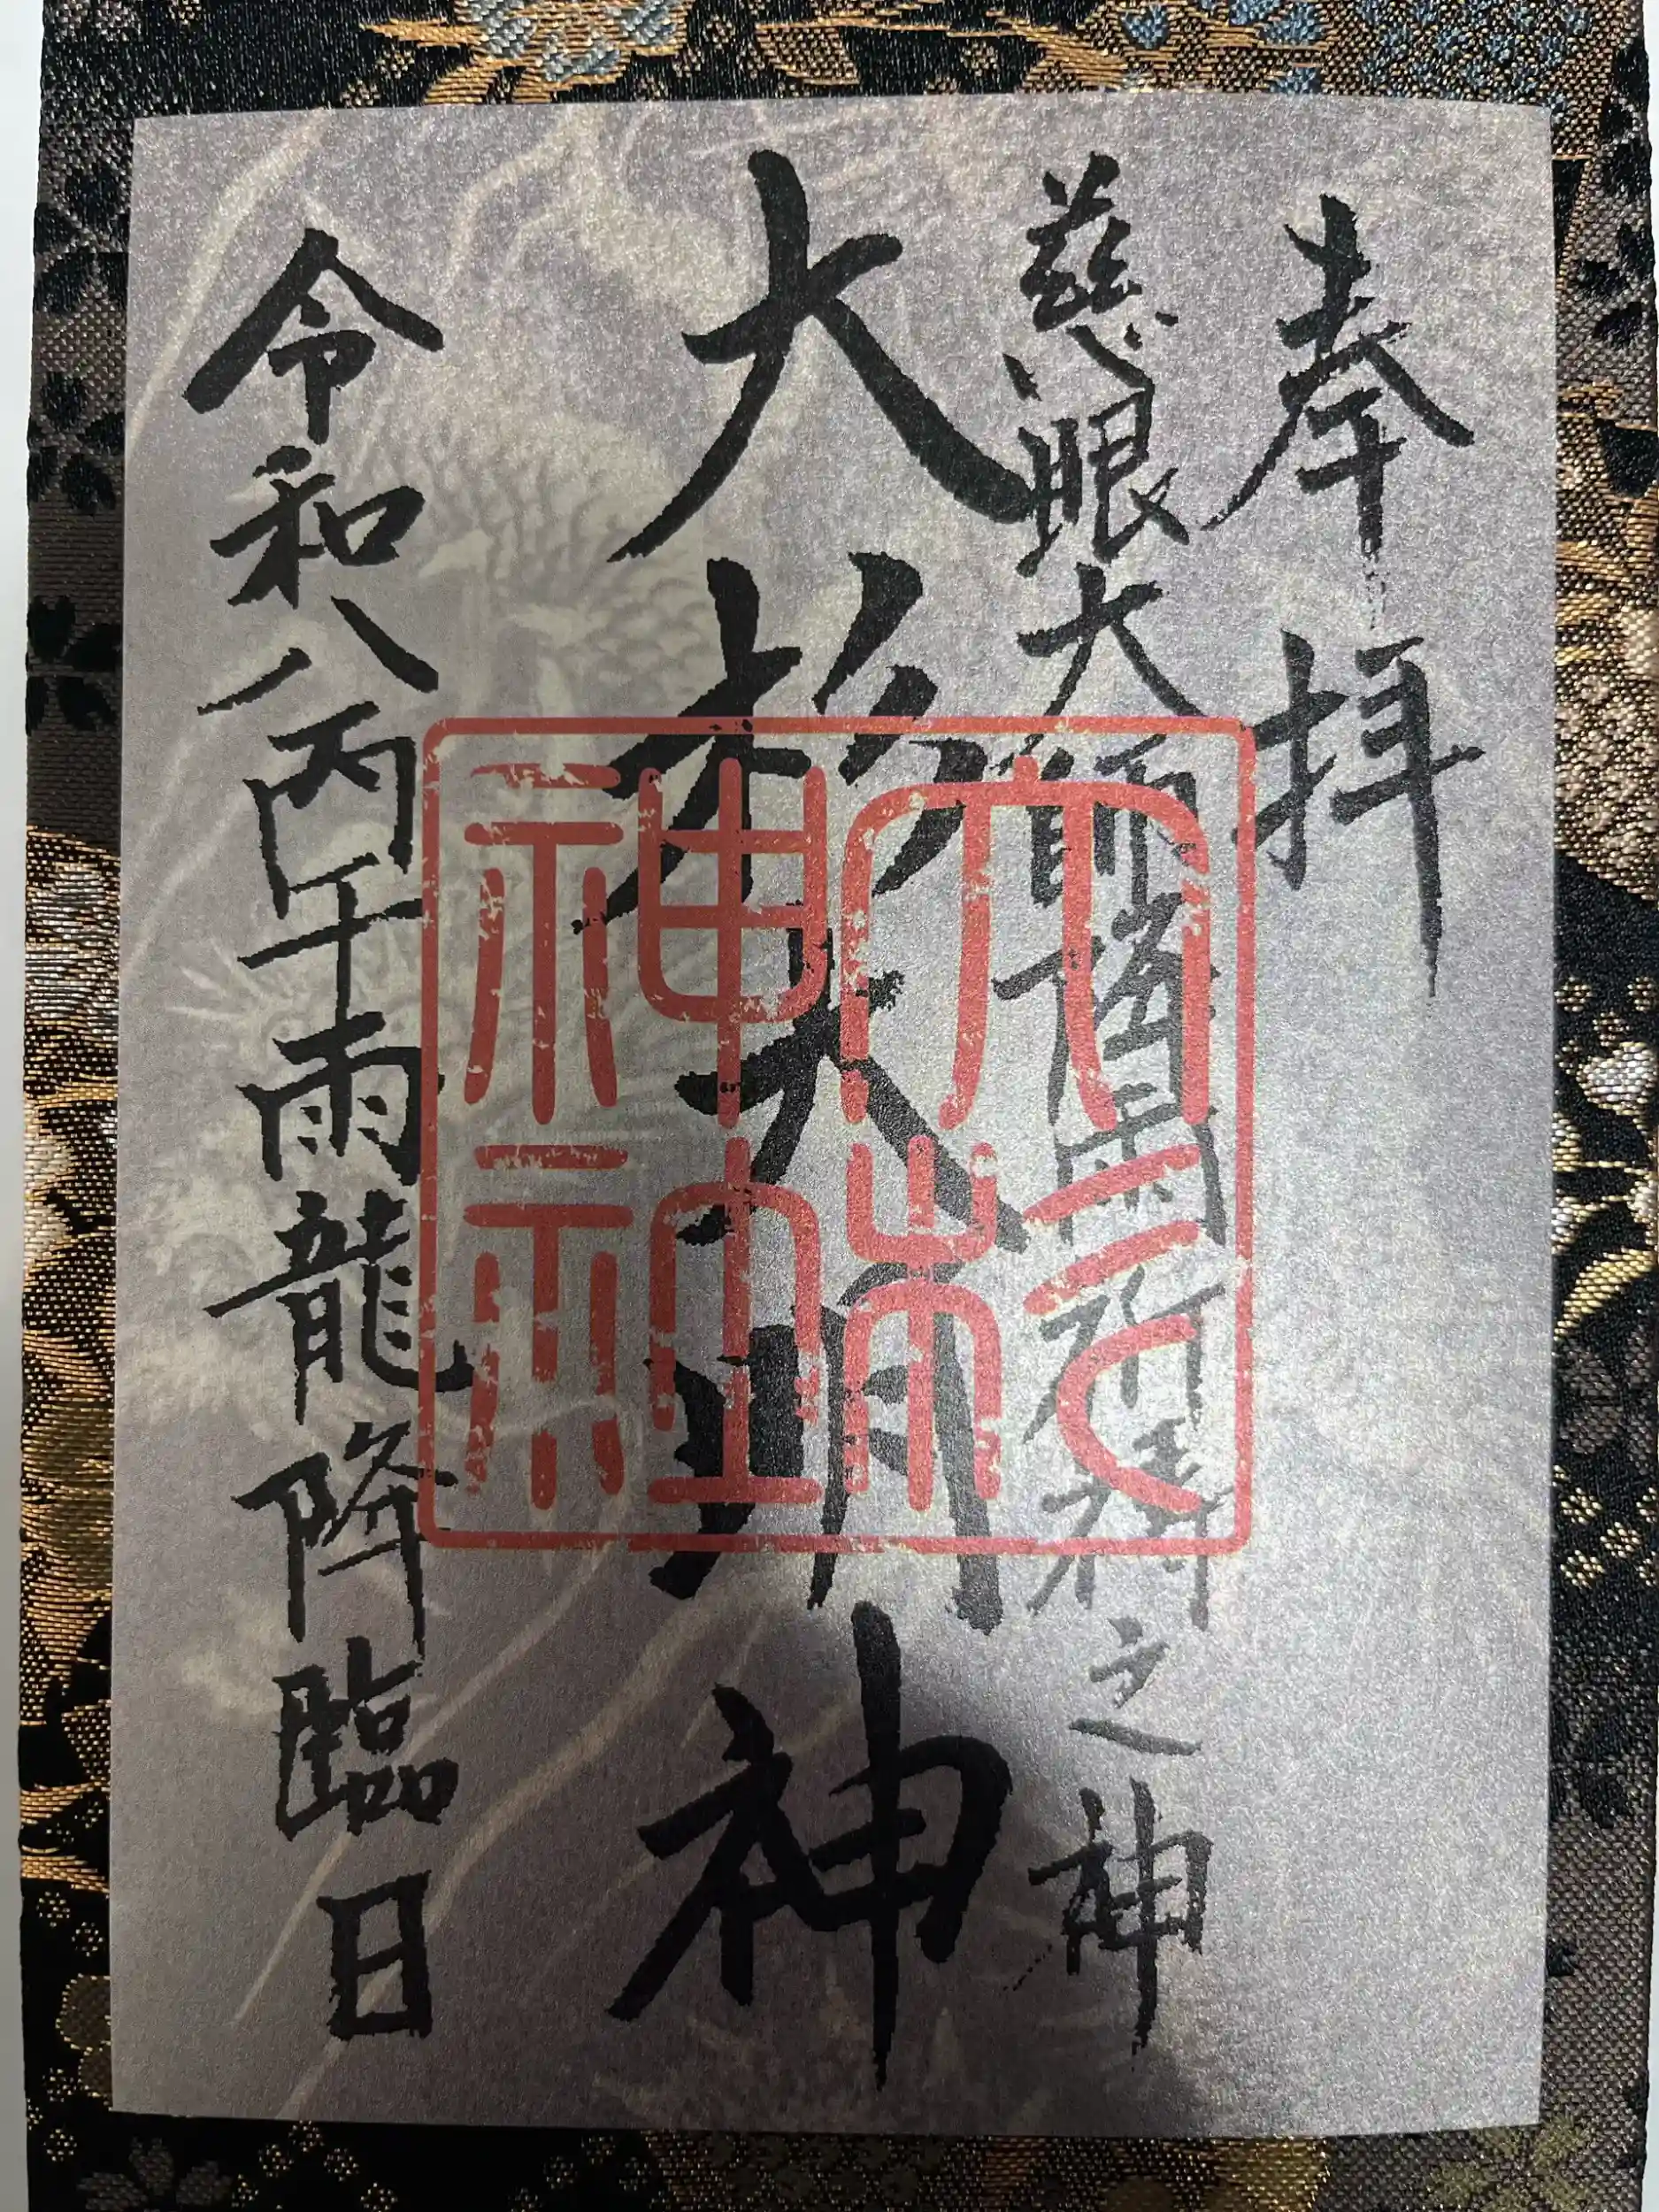 奉拝
慈眼大師雨祈祷之神
大杉大明神
大杉
神社
令和八丙午雨龍降臨日